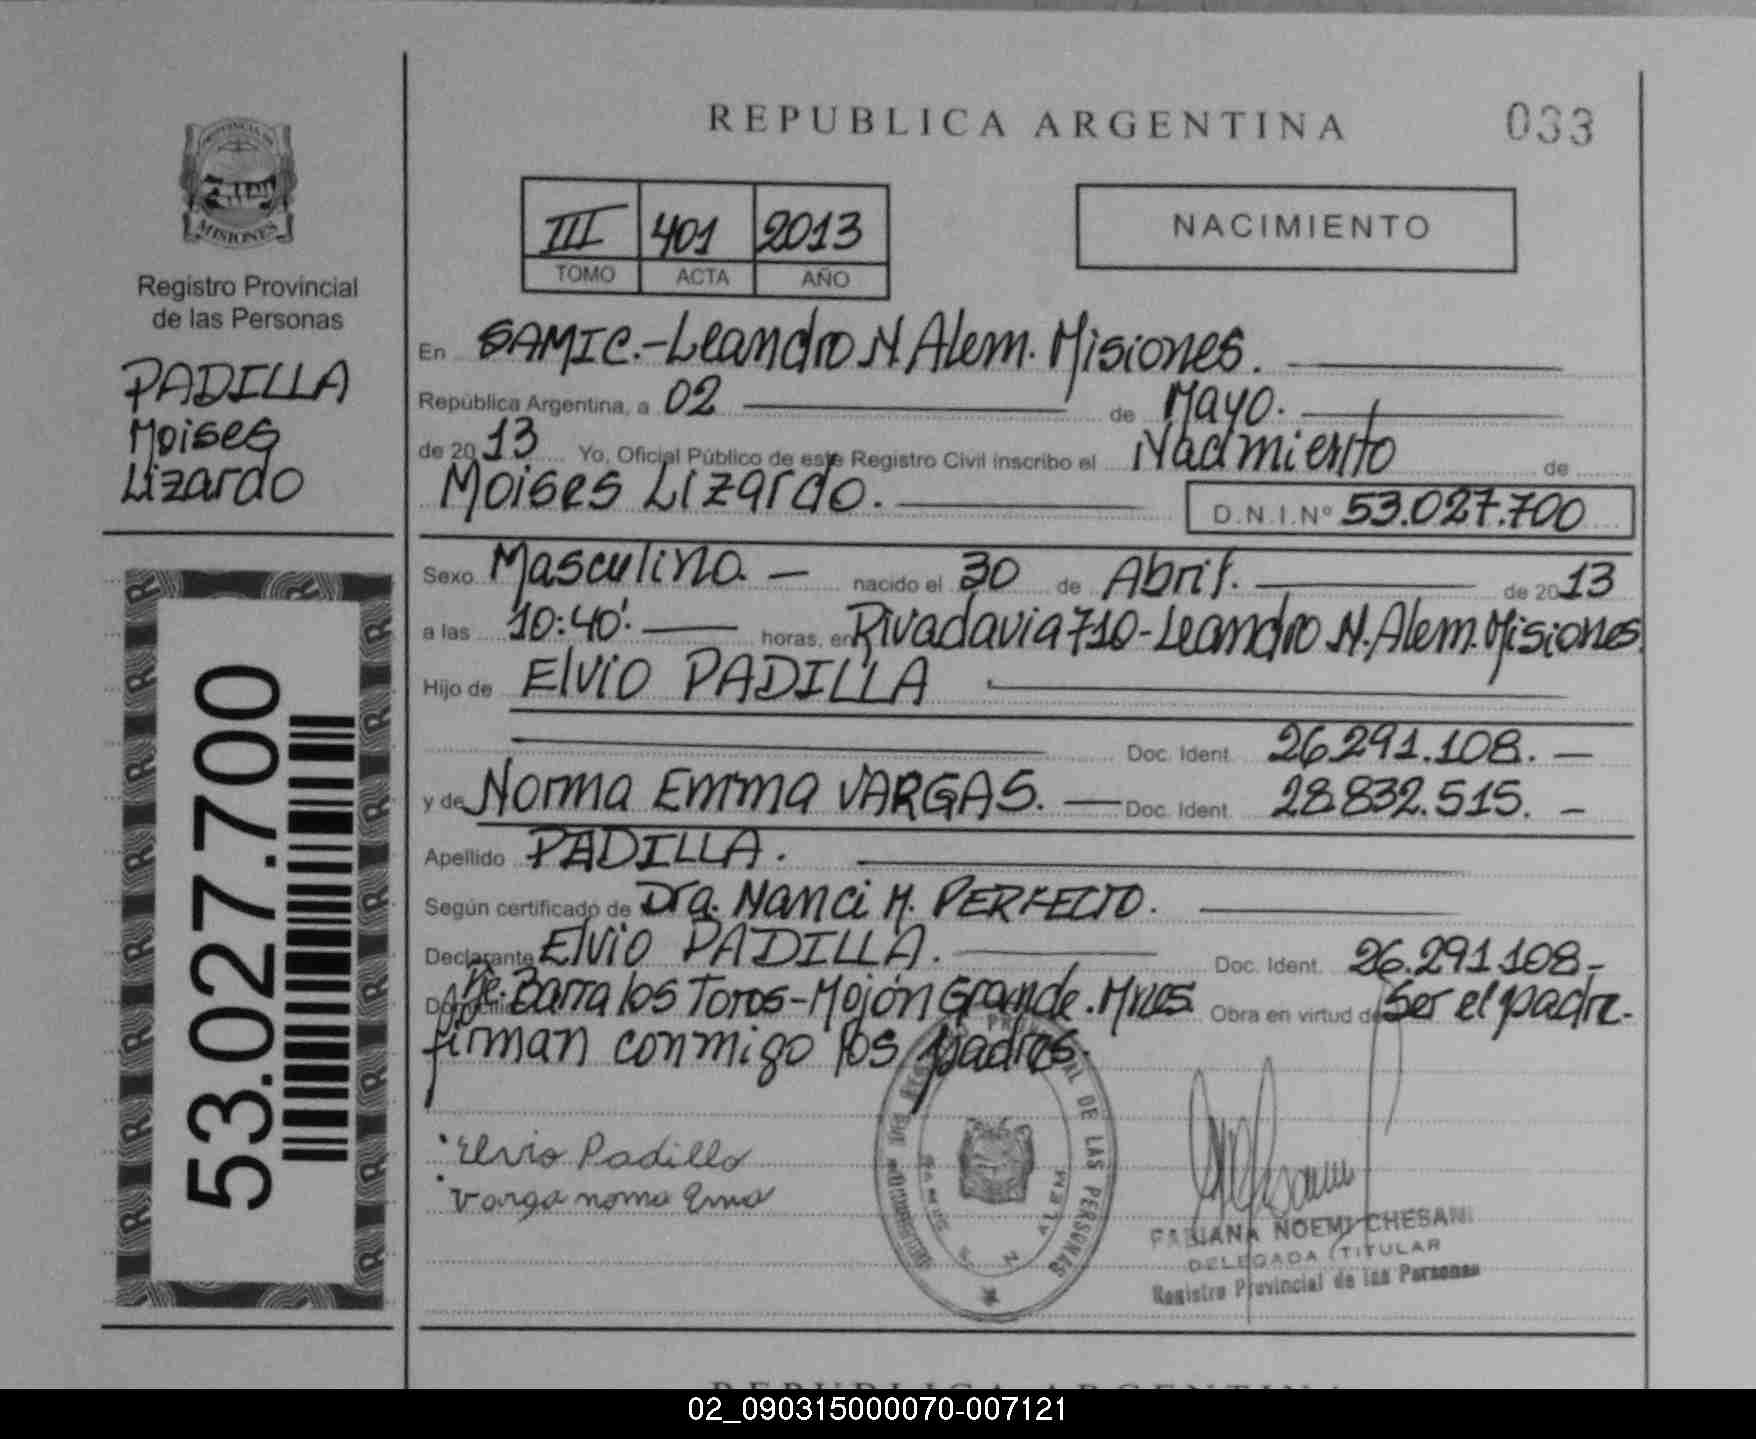 REPUBLICA ARGENTINA
033
PROVINCIA DE
MISIONES
Registro Provincial
de las Personas
PADILLA
Moises
Lizardo
53.027.700
III 401 2013
TOMO ACTA AÑO
NACIMIENTO
En SAMIC.-Leandro N Alem. Misiones.
República Argentina, a 02 de Mayo.
de 2013 Yo, Oficial Público de este Registro Civil inscribo el Nacimiento de
Moises Lizardo.
D.N.I.Nº 53.027.700
Sexo Masculino. — nacido el 30 de Abril. de 2013
a las 10:40'. horas, en Rivadavia 710-Leandro N. Alem. Misiones.
Hijo de Elvio PADILLA
Doc. Ident. 26.291.108. —
y de Norma Emma VARGAS. — Doc. Ident. 28.832.515. —
Apellido PADILLA.
Según certificado de Dra. Nanci M. PERFECTO.
Declarante Elvio PADILLA. Doc. Ident. 26.291.108-
Barra los Toros-Mojón Grande. Mnes. Obra en virtud de Ser el padre.
firman conmigo los padres.
Elvio Padilla
Varga norma Ema
DE LAS PERSONAS
N. ALEM
FABIANA NOEMI CHESANI
DELEGADA TITULAR
Registro Provincial de las Personas
REPUBLICA ARGENTINA
02_090315000070-007121